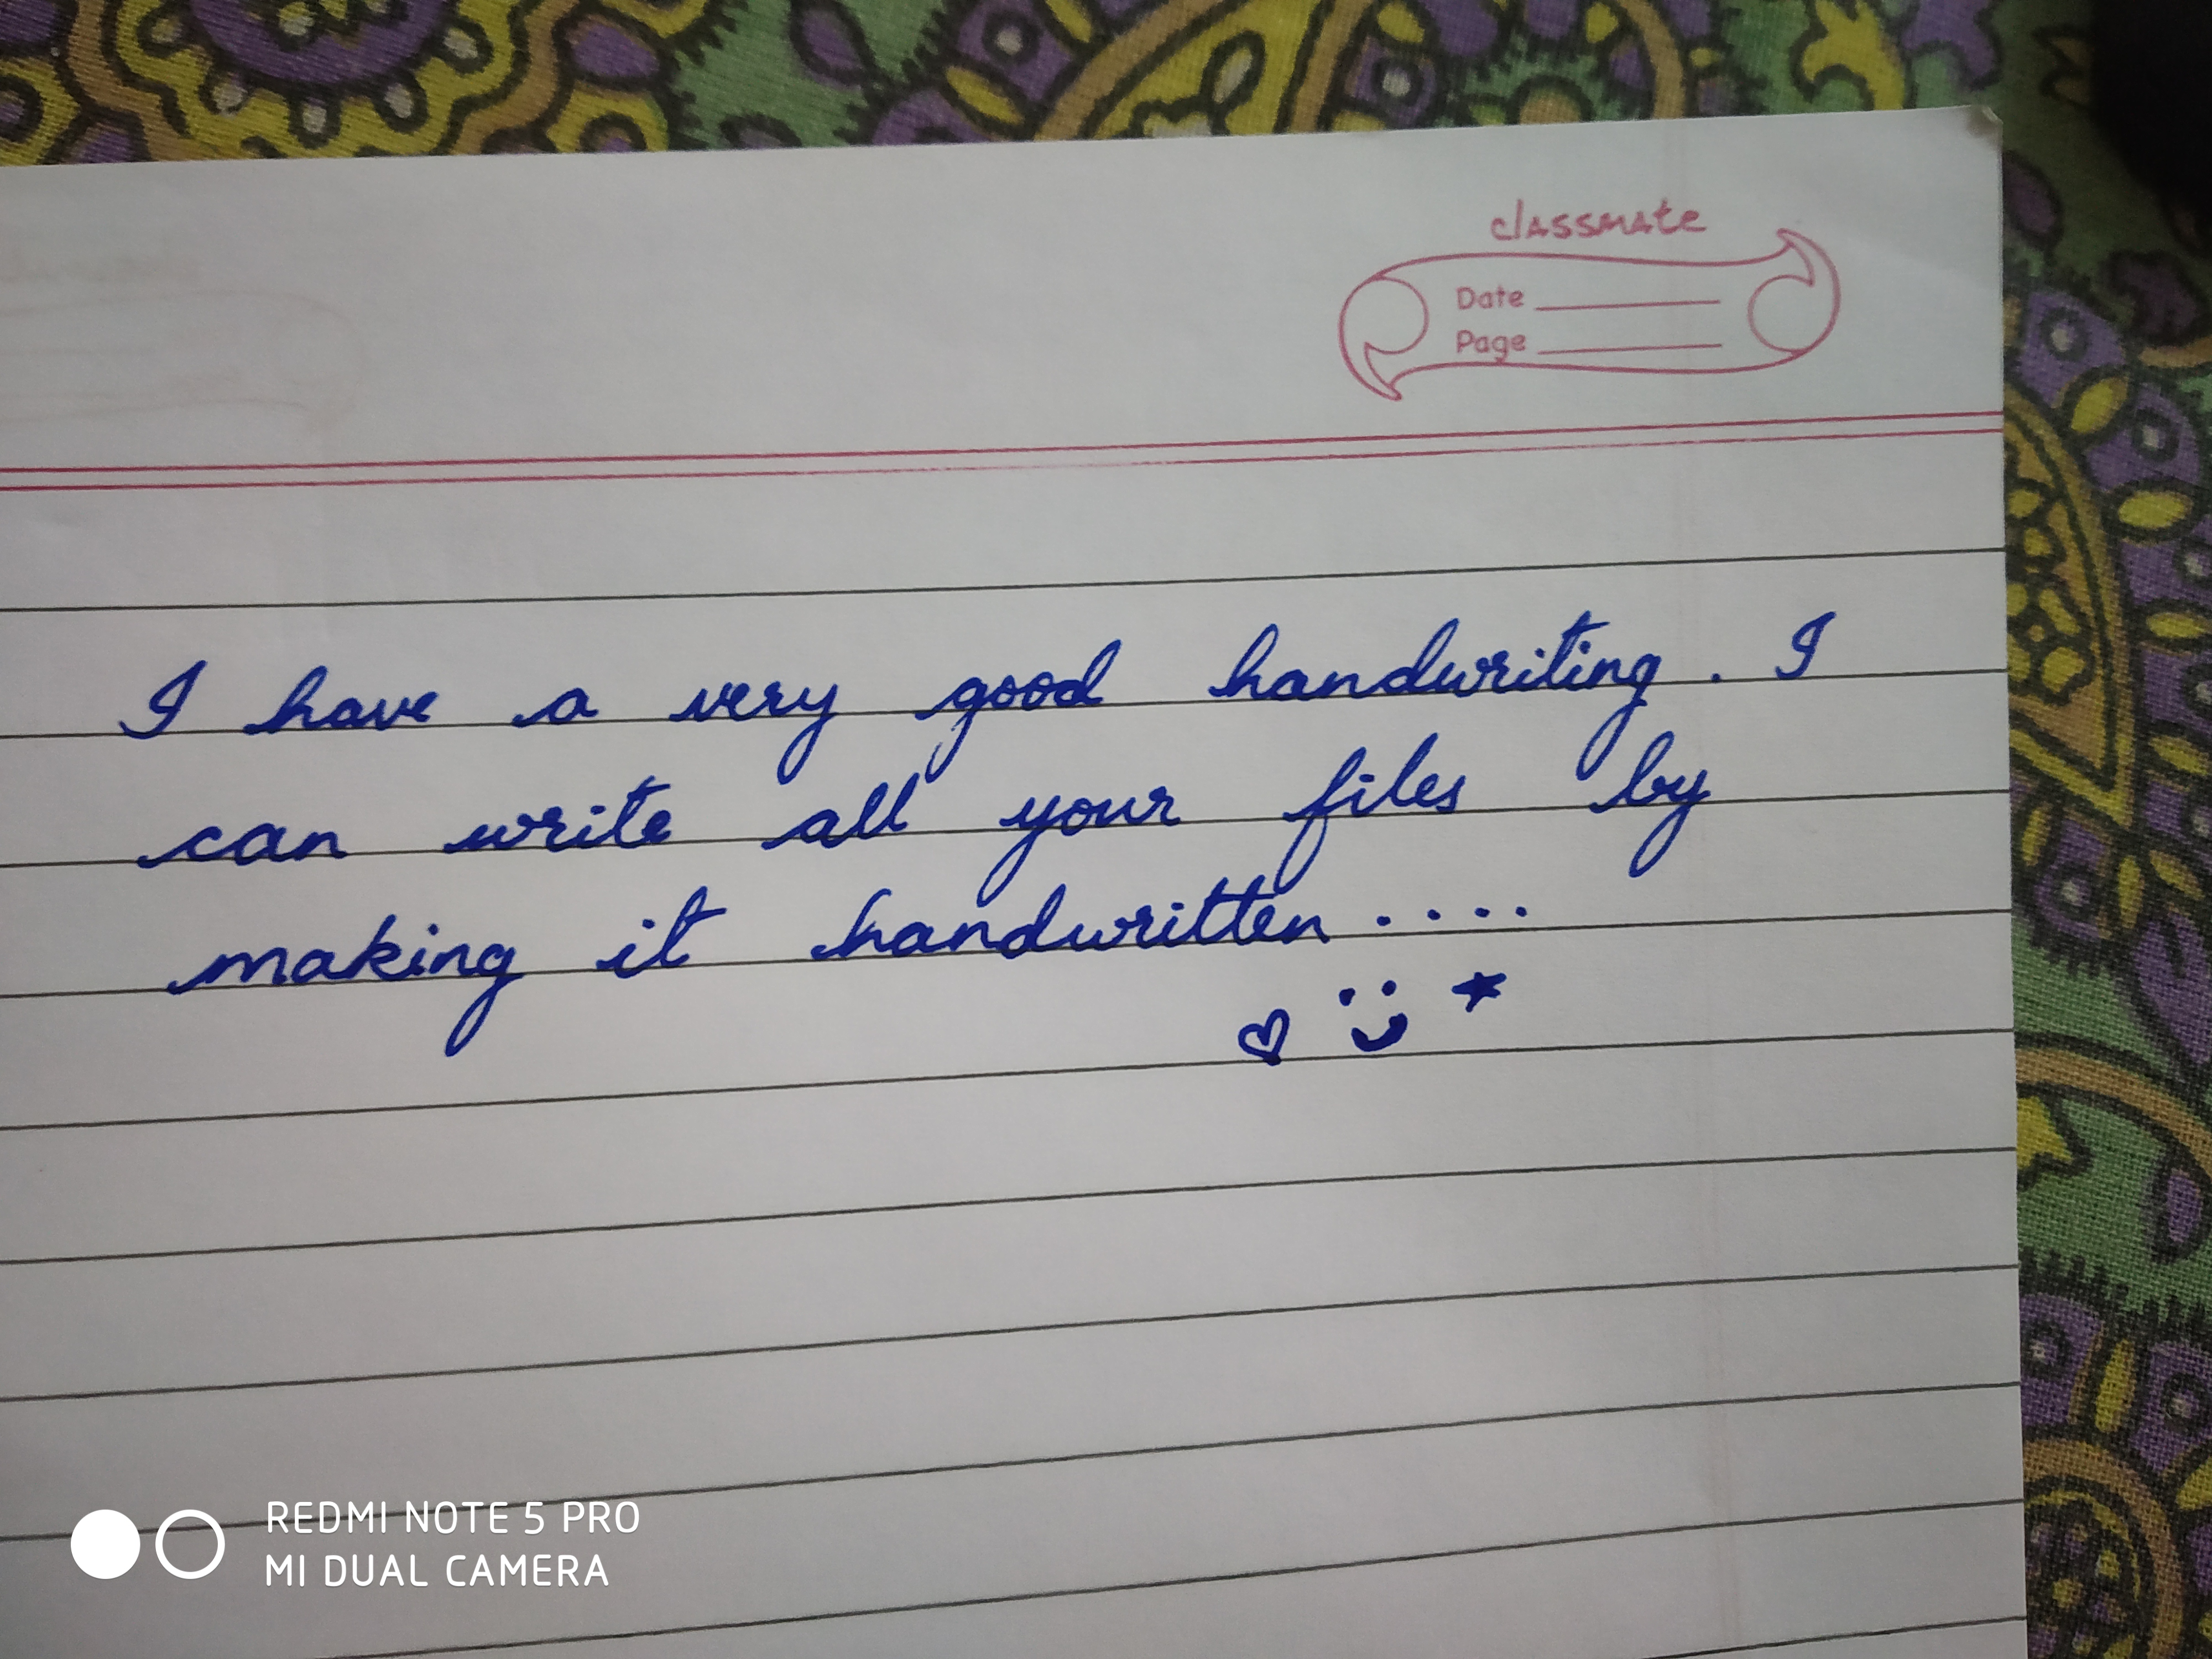 classmate
Date
Page
I have a very good handwriting. I
can write all your files by
making it handwritten....
REDMI NOTE 5 PRO
MI DUAL CAMERA